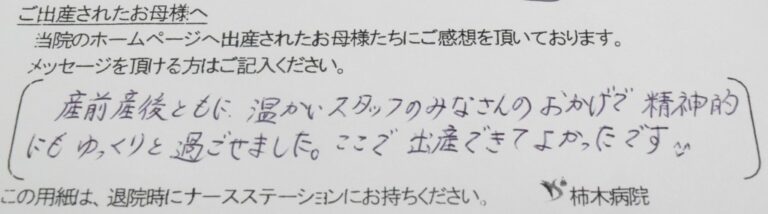 ご出産されたお母様へ
当院のホームページへ出産されたお母様たちにご感想を頂いております。
メッセージを頂ける方はご記入ください。
産前産後ともに、温かいスタッフのみなさんのおかげで 精神的
にもゆっくりと過ごせました。ここで出産できてよかったです
この用紙は、退院時にナースステーションにお持ちください。 柿木病院